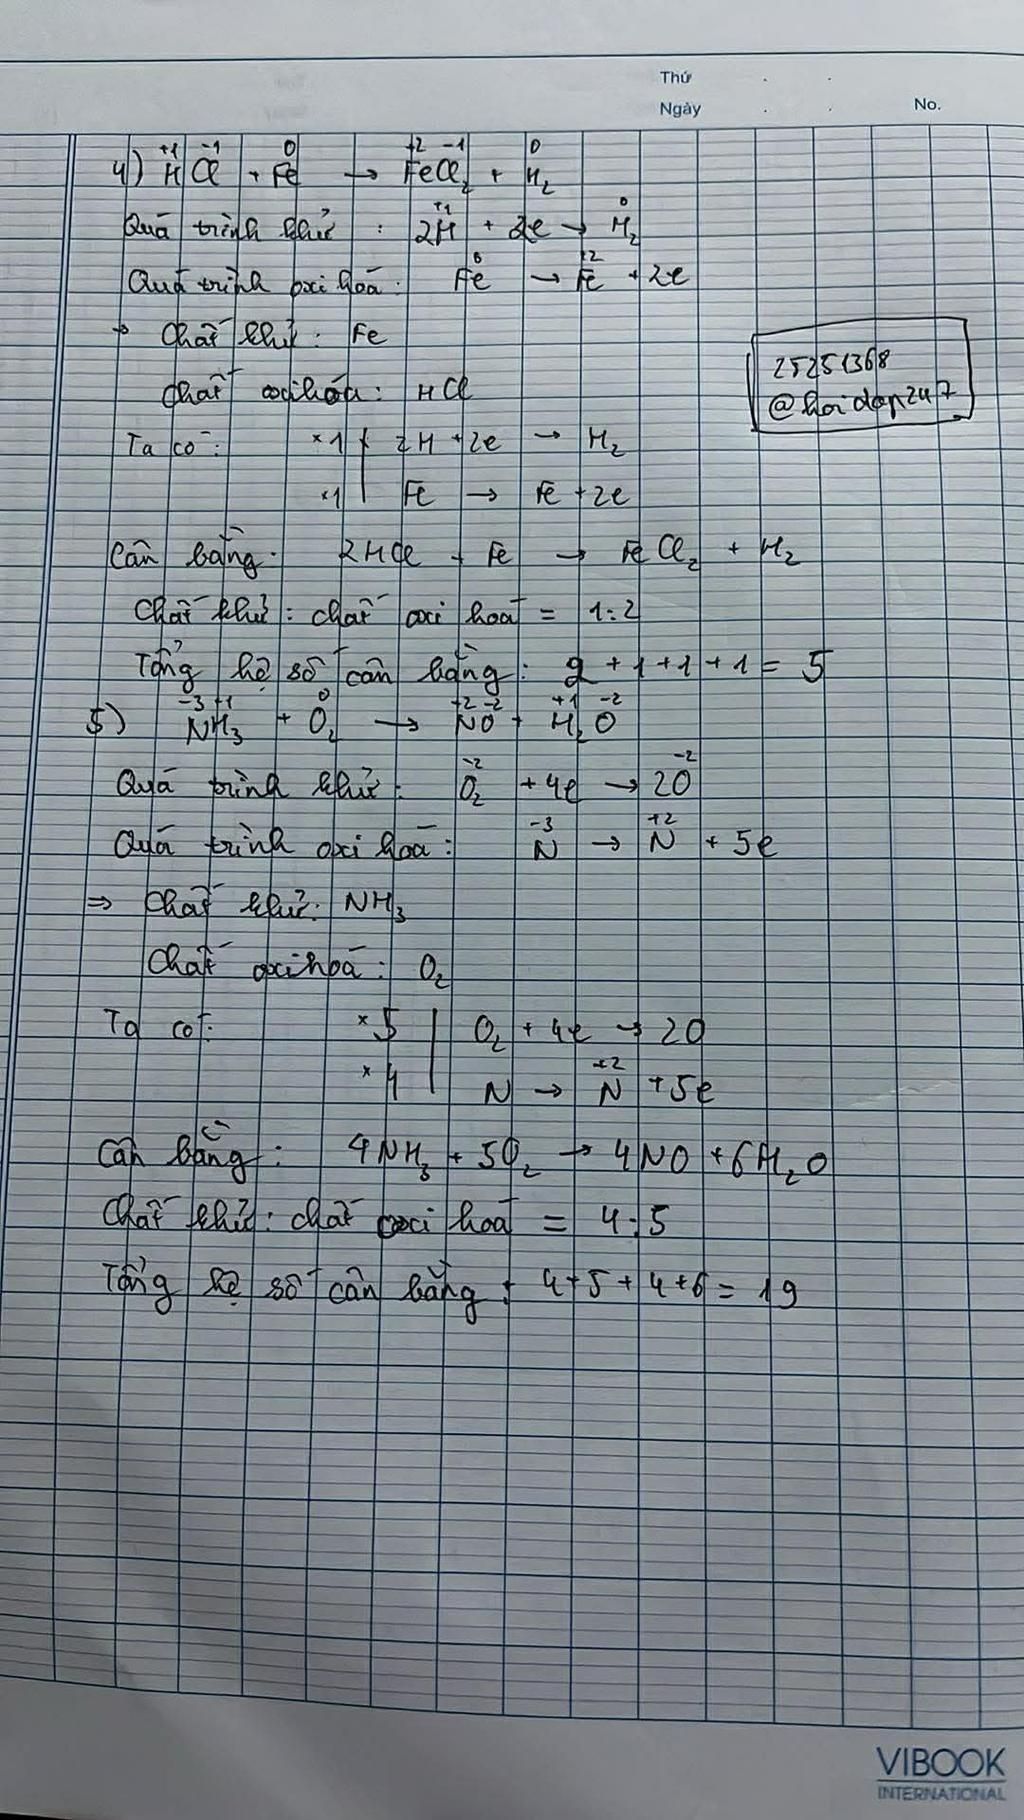 Thứ . .
Ngày . . No.
+1 -1 0 +2 -1 0
4) HCl + Fe → FeCl₂ + H₂
+1 0
Quá trình khử : 2H + 2e → H₂
0 +2
Quá trình oxi hoá: Fe → Fe + 2e
→ Chất khử: Fe
25251368
Chất oxi hóa: HCl
@hoidap247
Ta có: ×1 | 2H + 2e → H₂
×1 | Fe → Fe + 2e
Cân bằng: 2HCl + Fe → FeCl₂ + H₂
Chất khử: chất oxi hoá = 1:2
Tổng hệ số cân bằng: 2+1+1+1 = 5
-3 +1 0 +2 -2 +1 -2
5) NH₃ + O₂ → NO + H₂O
-2 -2
Quá trình khử: O₂ + 4e → 2O
-3 +2
Quá trình oxi hoá: N → N + 5e
⇒ Chất khử: NH₃
Chất oxi hoá: O₂
Ta có: ×5 | O₂ + 4e → 2O
+2
×4 | N → N + 5e
Cân bằng: 4NH₃ + 5O₂ → 4NO + 6H₂O
Chất khử: chất oxi hoá = 4:5
Tổng hệ số cân bằng: 4+5+4+6 = 19
VIBOOK
INTERNATIONAL